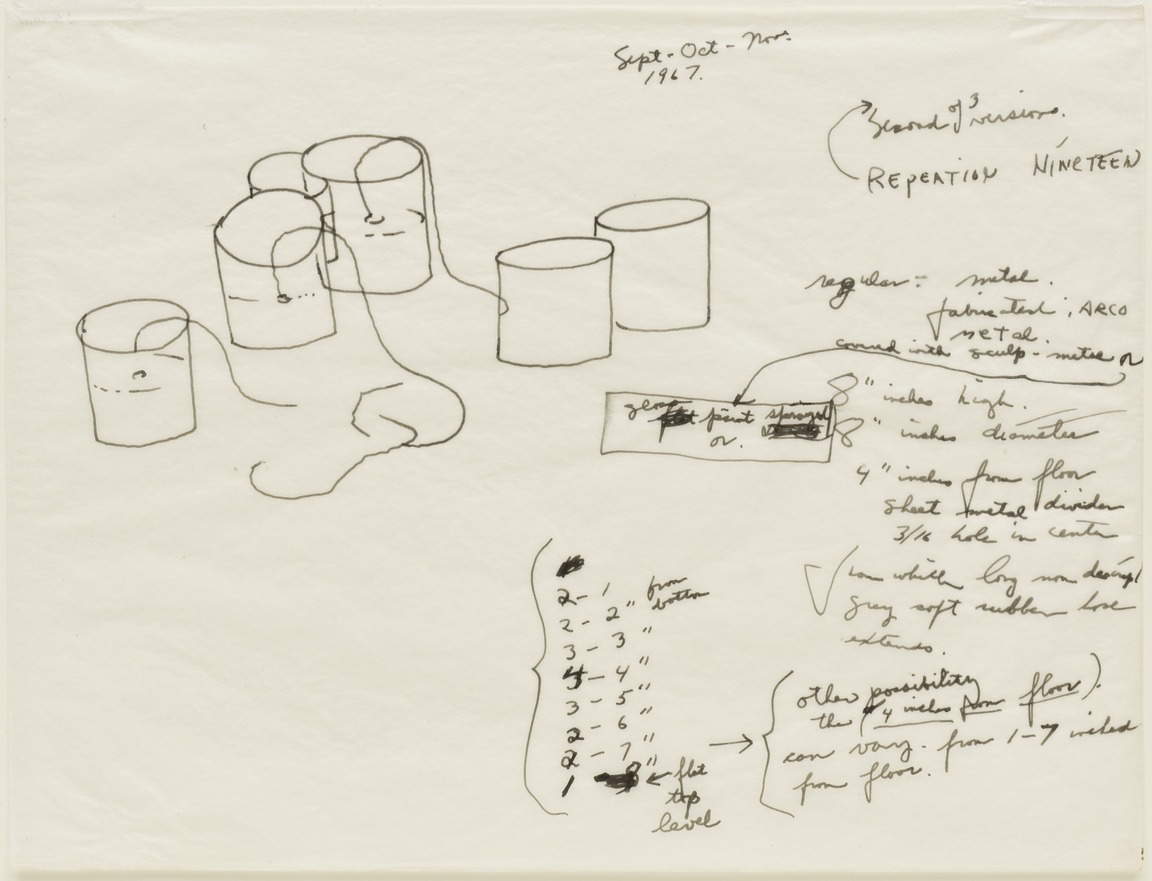 Sept-Oct-Nov.
1967.
Second of 3 versions.
REPEATION NINETEEN
regular: metal.
fabricated; ARCO
metal.
covered with sculp-metal or
paint sprayed
or.
8" inches high.
8" inches diameter
4" inches from floor
sheet metal divider
3/16 hole in center
from which long non descript
grey soft rubber hose
extends.
2 - 1 from
2 - 2" bottom
3 - 3 "
4 - 4 "
3 - 5 "
2 - 6 "
2 - 7 "
1 8" ← flat
top
level
→
other possibility
the (4 inches from floor).
can vary. from 1-7 inches
from floor.